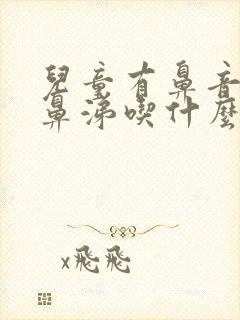 兒童有鼻音
鼻涕喫什麼
x飛飛